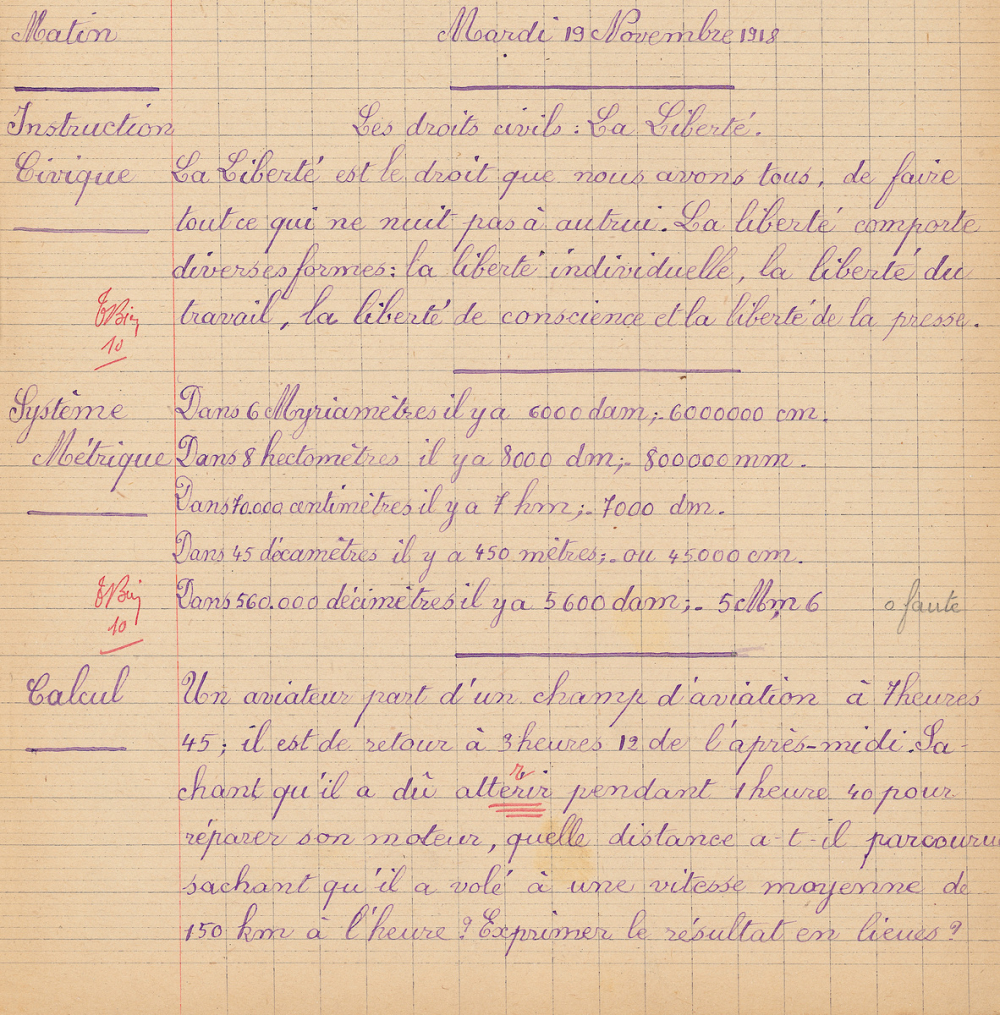 Matin Mardi 19 Novembre 1918
Instruction Les droits civils : La Liberté.
Civique La Liberté est le droit que nous avons tous, de faire
tout ce qui ne nuit pas à autrui. La liberté comporte
diverses formes : la liberté individuelle, la liberté du
travail, la liberté de conscience et la liberté de la presse.
TBien
10
Système Dans 6 Myriamètres il y a 6000 dam ;. 6000000 cm.
Métrique Dans 8 hectomètres il y a 8000 dm ;. 800000 mm.
Dans 70.000 centimètres il y a 7 hm ;. 7000 dm.
Dans 45 décamètres il y a 450 mètres ;. ou 45000 cm.
TBien Dans 560.000 décimètres il y a 5600 dam ;. 5 Mm 6 0 faute
10
Calcul Un aviateur part d'un champ d'aviation à 7 heures
45 ; il est de retour à 3 heures 12 de l'après-midi. Sa-
r
chant qu'il a dû atterir pendant 1 heure 40 pour
réparer son moteur, quelle distance a-t-il parcouru
sachant qu'il a volé à une vitesse moyenne de
150 km à l'heure ? Exprimer le résultat en lieues ?